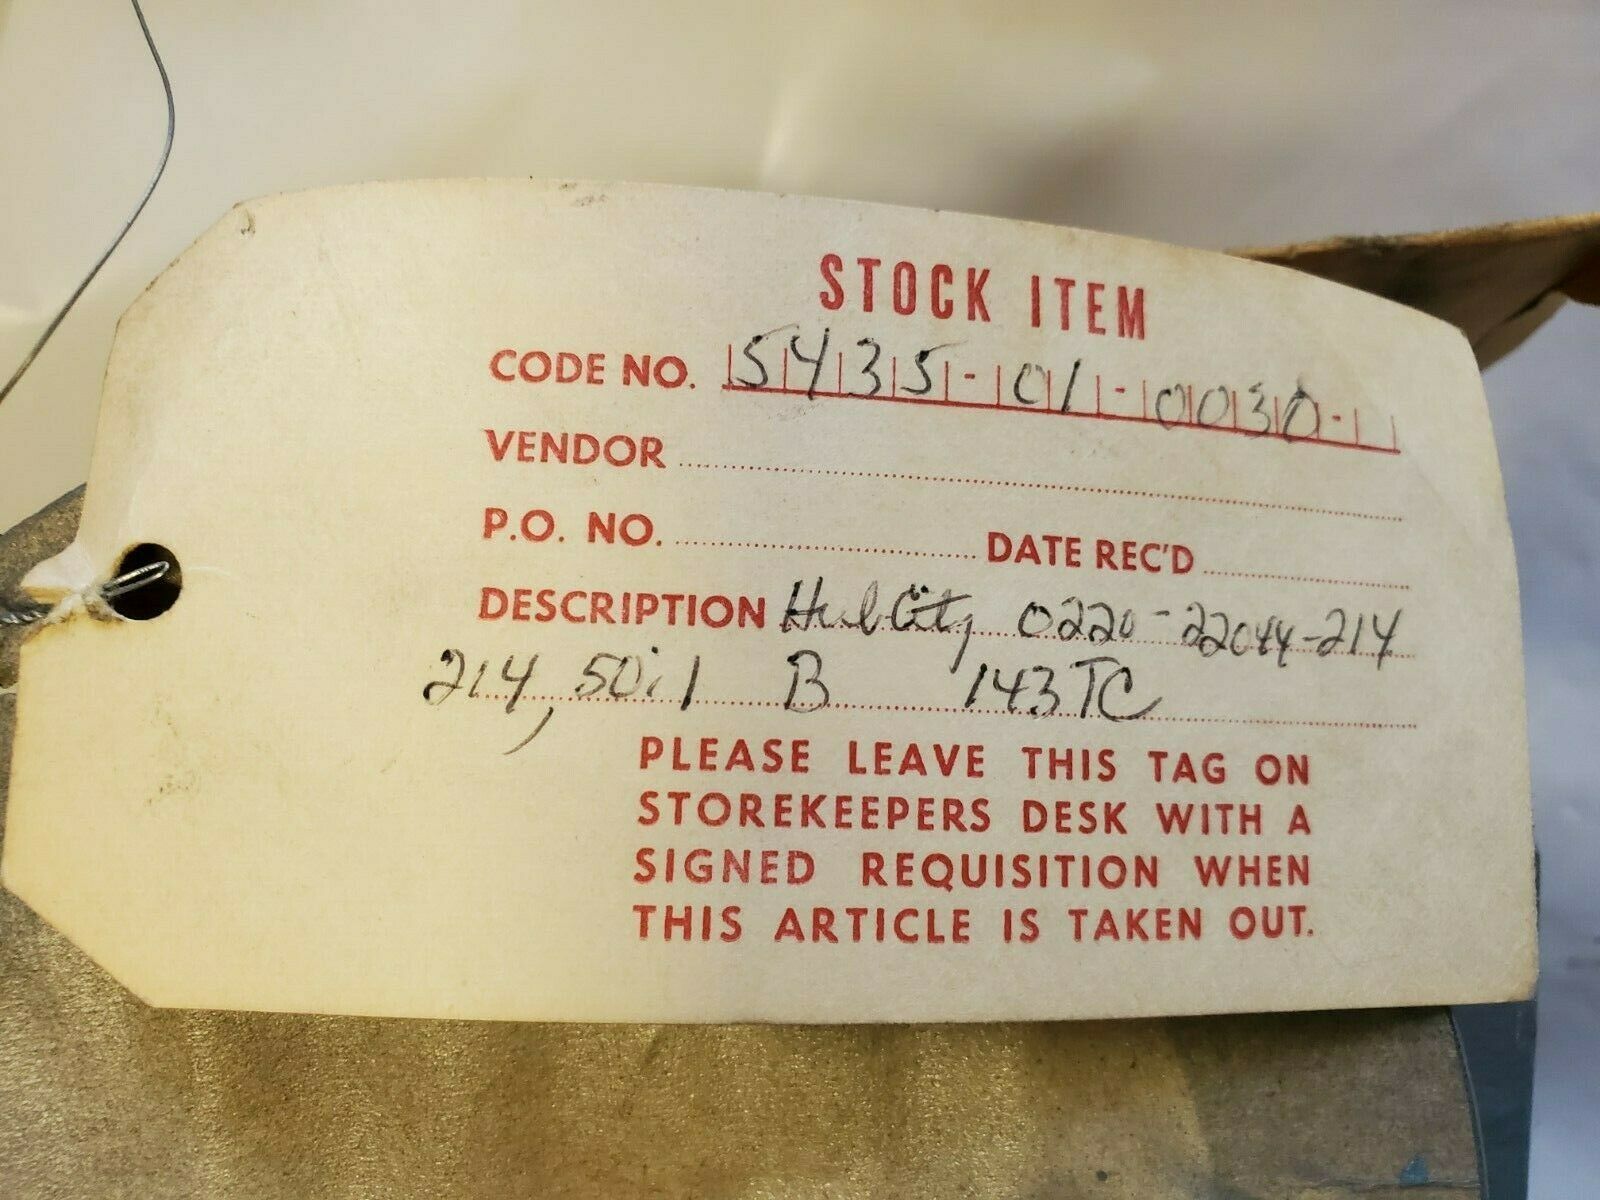 STOCK ITEM
CODE NO. 5435-01-0030-
VENDOR
P.O. NO. DATE REC'D
DESCRIPTION Hub City 0220-22044-214
214, 50:1 B 143TC
PLEASE LEAVE THIS TAG ON
STOREKEEPERS DESK WITH A
SIGNED REQUISITION WHEN
THIS ARTICLE IS TAKEN OUT.